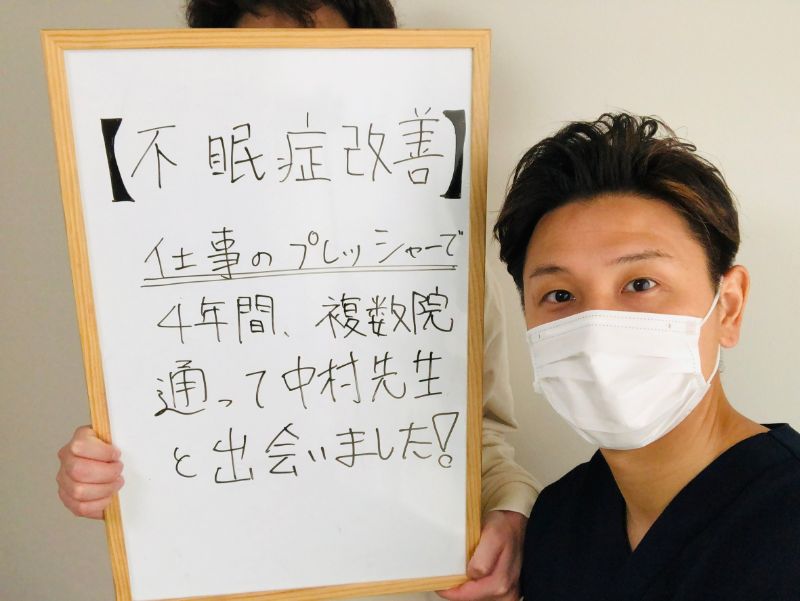 【不眠症改善】
仕事のプレッシャーで
4年間、複数院
通って中村先生
と出会いました!